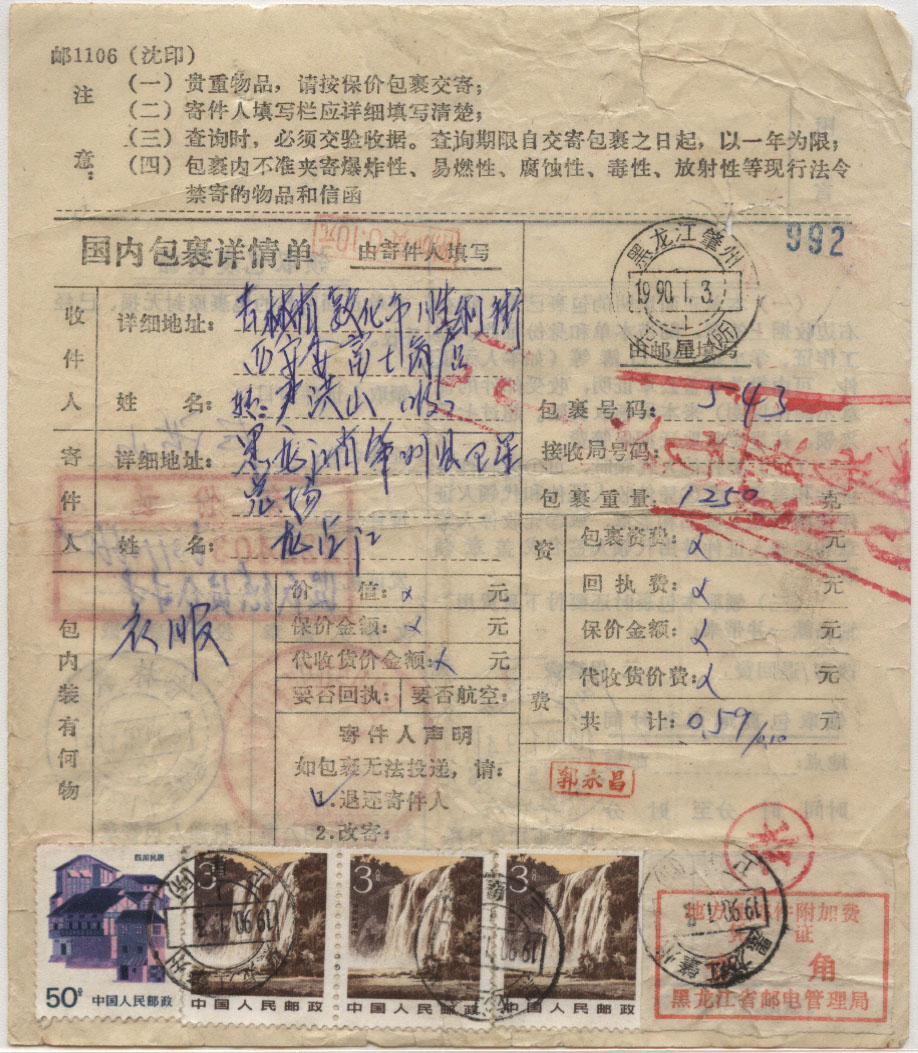 邮1106(沈印)
注意:
(一)贵重物品,请按保价包裹交寄;
(二)寄件人填写栏应详细填写清楚;
(三)查询时,必须交验收据。查询期限自交寄包裹之日起,以一年为限;
(四)包裹内不准夹寄爆炸性、易燃性、腐蚀性、毒性、放射性等现行法令
禁寄的物品和信函
992
国内包裹详情单 由寄件人填写
黑龙江肇州
1990.1.3.
由邮局填写
收件人
详细地址:吉林省敦化市胜利街
姓名:尹洪山 收
寄件人
详细地址:黑龙江省肇州县卫星
农场
姓名:
包裹号码:543
接收局号码:
包裹重量:1250 克
包内装有何物
衣服
价值: 元
保价金额: 元
代收货价金额: 元
要否回执: 要否航空:
寄件人声明
如包裹无法投递,请:
1.退还寄件人
2.改寄:
资费
包裹资费: 元
回执费: 元
保价金额: 元
代收货价费: 元
共计:0.59/0.10 元
郭永昌
四川民居
50分 中国人民邮政
3分
中国人民邮政
3分
中国人民邮政
3分
中国人民邮政
1990.1.3
1990
1990.1.3
黑龙江肇州
角
黑龙江省邮电管理局